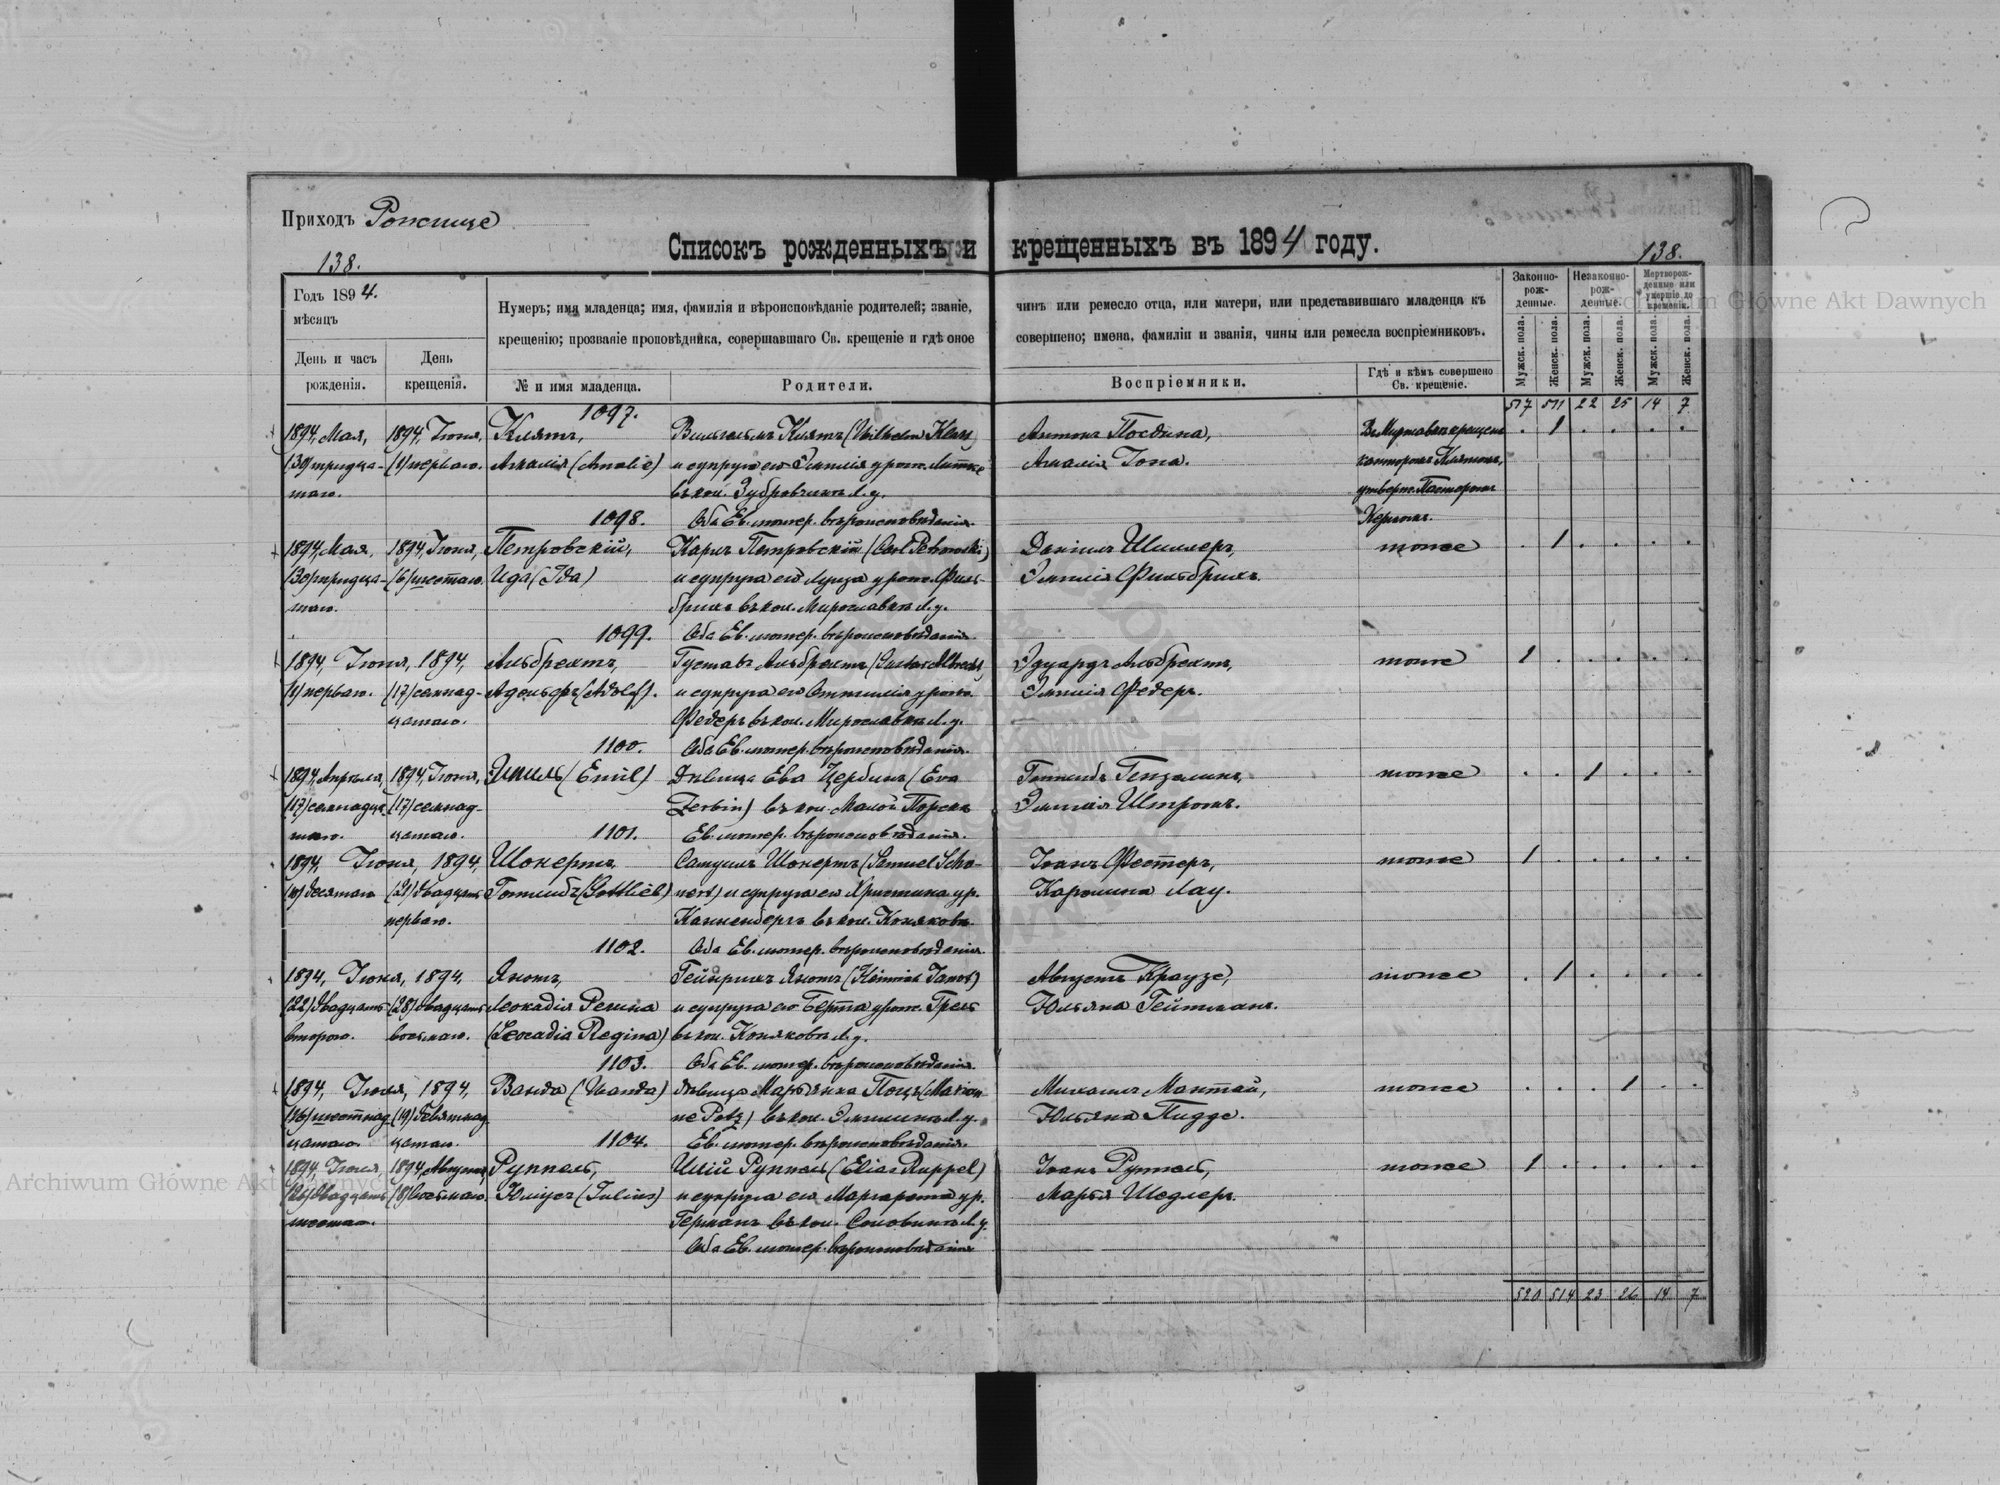 Приходъ Рожище
Списокъ рожденныхъ и крещенныхъ въ 1894 году.
138.
138.
Годъ 1894.
мѣсяцъ
День и часъ рожденія.
День крещенія.
Нумеръ; имя младенца; имя, фамилія и вѣроисповѣданіе родителей; званіе, чинъ или ремесло отца, или матери, или представившаго младенца къ
крещенію; прозваніе проповѣдника, совершавшаго Св. крещеніе и гдѣ оное совершено; имена, фамиліи и званія, чины или ремесла воспріемниковъ.
№ и имя младенца.
Родители.
Воспріемники.
Гдѣ и кѣмъ совершено Св. крещеніе.
Законно-рож-денные.
Незаконно-рож-денные.
Мертворож-денные или умершіе до крещенія.
Мужск. пола.
Женск. пола.
Мужск. пола.
Женск. пола.
Мужск. пола.
Женск. пола.
517 511 22 25 14 7
1097.
1894, Мая, 1894, Іюня, Клятъ, Вильгельмъ Клятъ (Wilhelm Klatt)
(30) тридца- (1) перваго. Амалія (Amalie) и супруга его Эмилія урож. Литке
таго. въ кол.
Обa Ев. лютер. вѣроисповѣданія.
Амалія Іона.
канторомъ
утвержд. Пасторомъ
Керномъ.
· 1 · · · ·
1098.
1894, Мая, 1894, Іюня, Петровскій, Карлъ Петровскій (Carl Petrowski)
(30) тридца- (6) шестаго. Ида (Ida) и супруга его Луиза урож. Филь-
таго. брихъ въ кол. Мирославкѣ Л. у.
Оба Ев. лютер. вѣроисповѣданія.
Даніилъ Шиллеръ,
Эмилія Фильбрихъ.
тоже
· 1 · · · ·
1099.
1894, Іюня, 1894, Альбрехтъ, Густавъ Альбрехтъ (Gustav Albrecht)
(1) перваго. (17) семнад- Адольфъ (Adolf). и супруга его Оттилія урож.
цатаго. Федеръ въ кол. Мирославкѣ Л. у.
Оба Ев. лютер. вѣроисповѣданія.
Эдуардъ Альбрехтъ,
Эмилія Федеръ.
тоже
1 · · · · ·
1100.
1894, Апрѣля, 1894, Іюня, Эмиль (Emil) Дѣвица Ева Цербинъ (Eva
(17) семнадца- (17) семнад- Zerbin) въ кол. Малой Порскѣ
таго. цатаго. Ев. лютер. вѣроисповѣданія.
Готлибъ
Эмилія Штромъ.
тоже
· · 1 · · ·
1101.
1894, Іюня, 1894, Шонертъ Самуилъ Шонертъ (Samuel Scho-
(10) десятаго (21) двадцать Готлибъ (Gottlieb) nert) и супруга его Христина ур.
перваго. Канненбергъ въ кол.
Іоанъ Фестеръ,
Каролина Лау.
тоже
1 · · · · ·
1102.
Оба Ев. лютер. вѣроисповѣданія.
1894, Іюня, 1894, Янотъ, Гейнрихъ Янотъ (Heinrich Janot)
(22) двадцать (28) двадцать Леокадія Регина и супруга его Берта урож.
втораго. восьмаго. (Leocadia Regina) въ кол.
Оба Ев. лютер. вѣроисповѣданія.
Августъ Краузе,
Юльяна Гейтманъ.
тоже
· 1 · · · ·
1103.
1894, 1894, Ванда (Wanda) дѣвица Марьянна Поцъ (Marian-
(16) шестнад- (19) девятнад- ne Potz) въ кол.
цатаго. цатаго. Ев. лютер. вѣроисповѣданія.
Михаилъ Мантай,
Юльяна Пидде.
тоже
· · · 1 · ·
1104.
1894, 1894, Августа, Руппель, Илій Руппель (Elias Ruppel)
(26) двадцать (8) восьмаго. Юліусъ (Julius) и супруга его Маргарета ур.
шестаго. Германъ въ кол.
Оба Ев. лютер. вѣроисповѣданія
Іоанъ Руппель,
Марья Шедлеръ.
тоже
1 · · · · ·
520 514 23 26 14 7
Archiwum Główne Akt Dawnych
Archiwum Główne Akt Dawnych